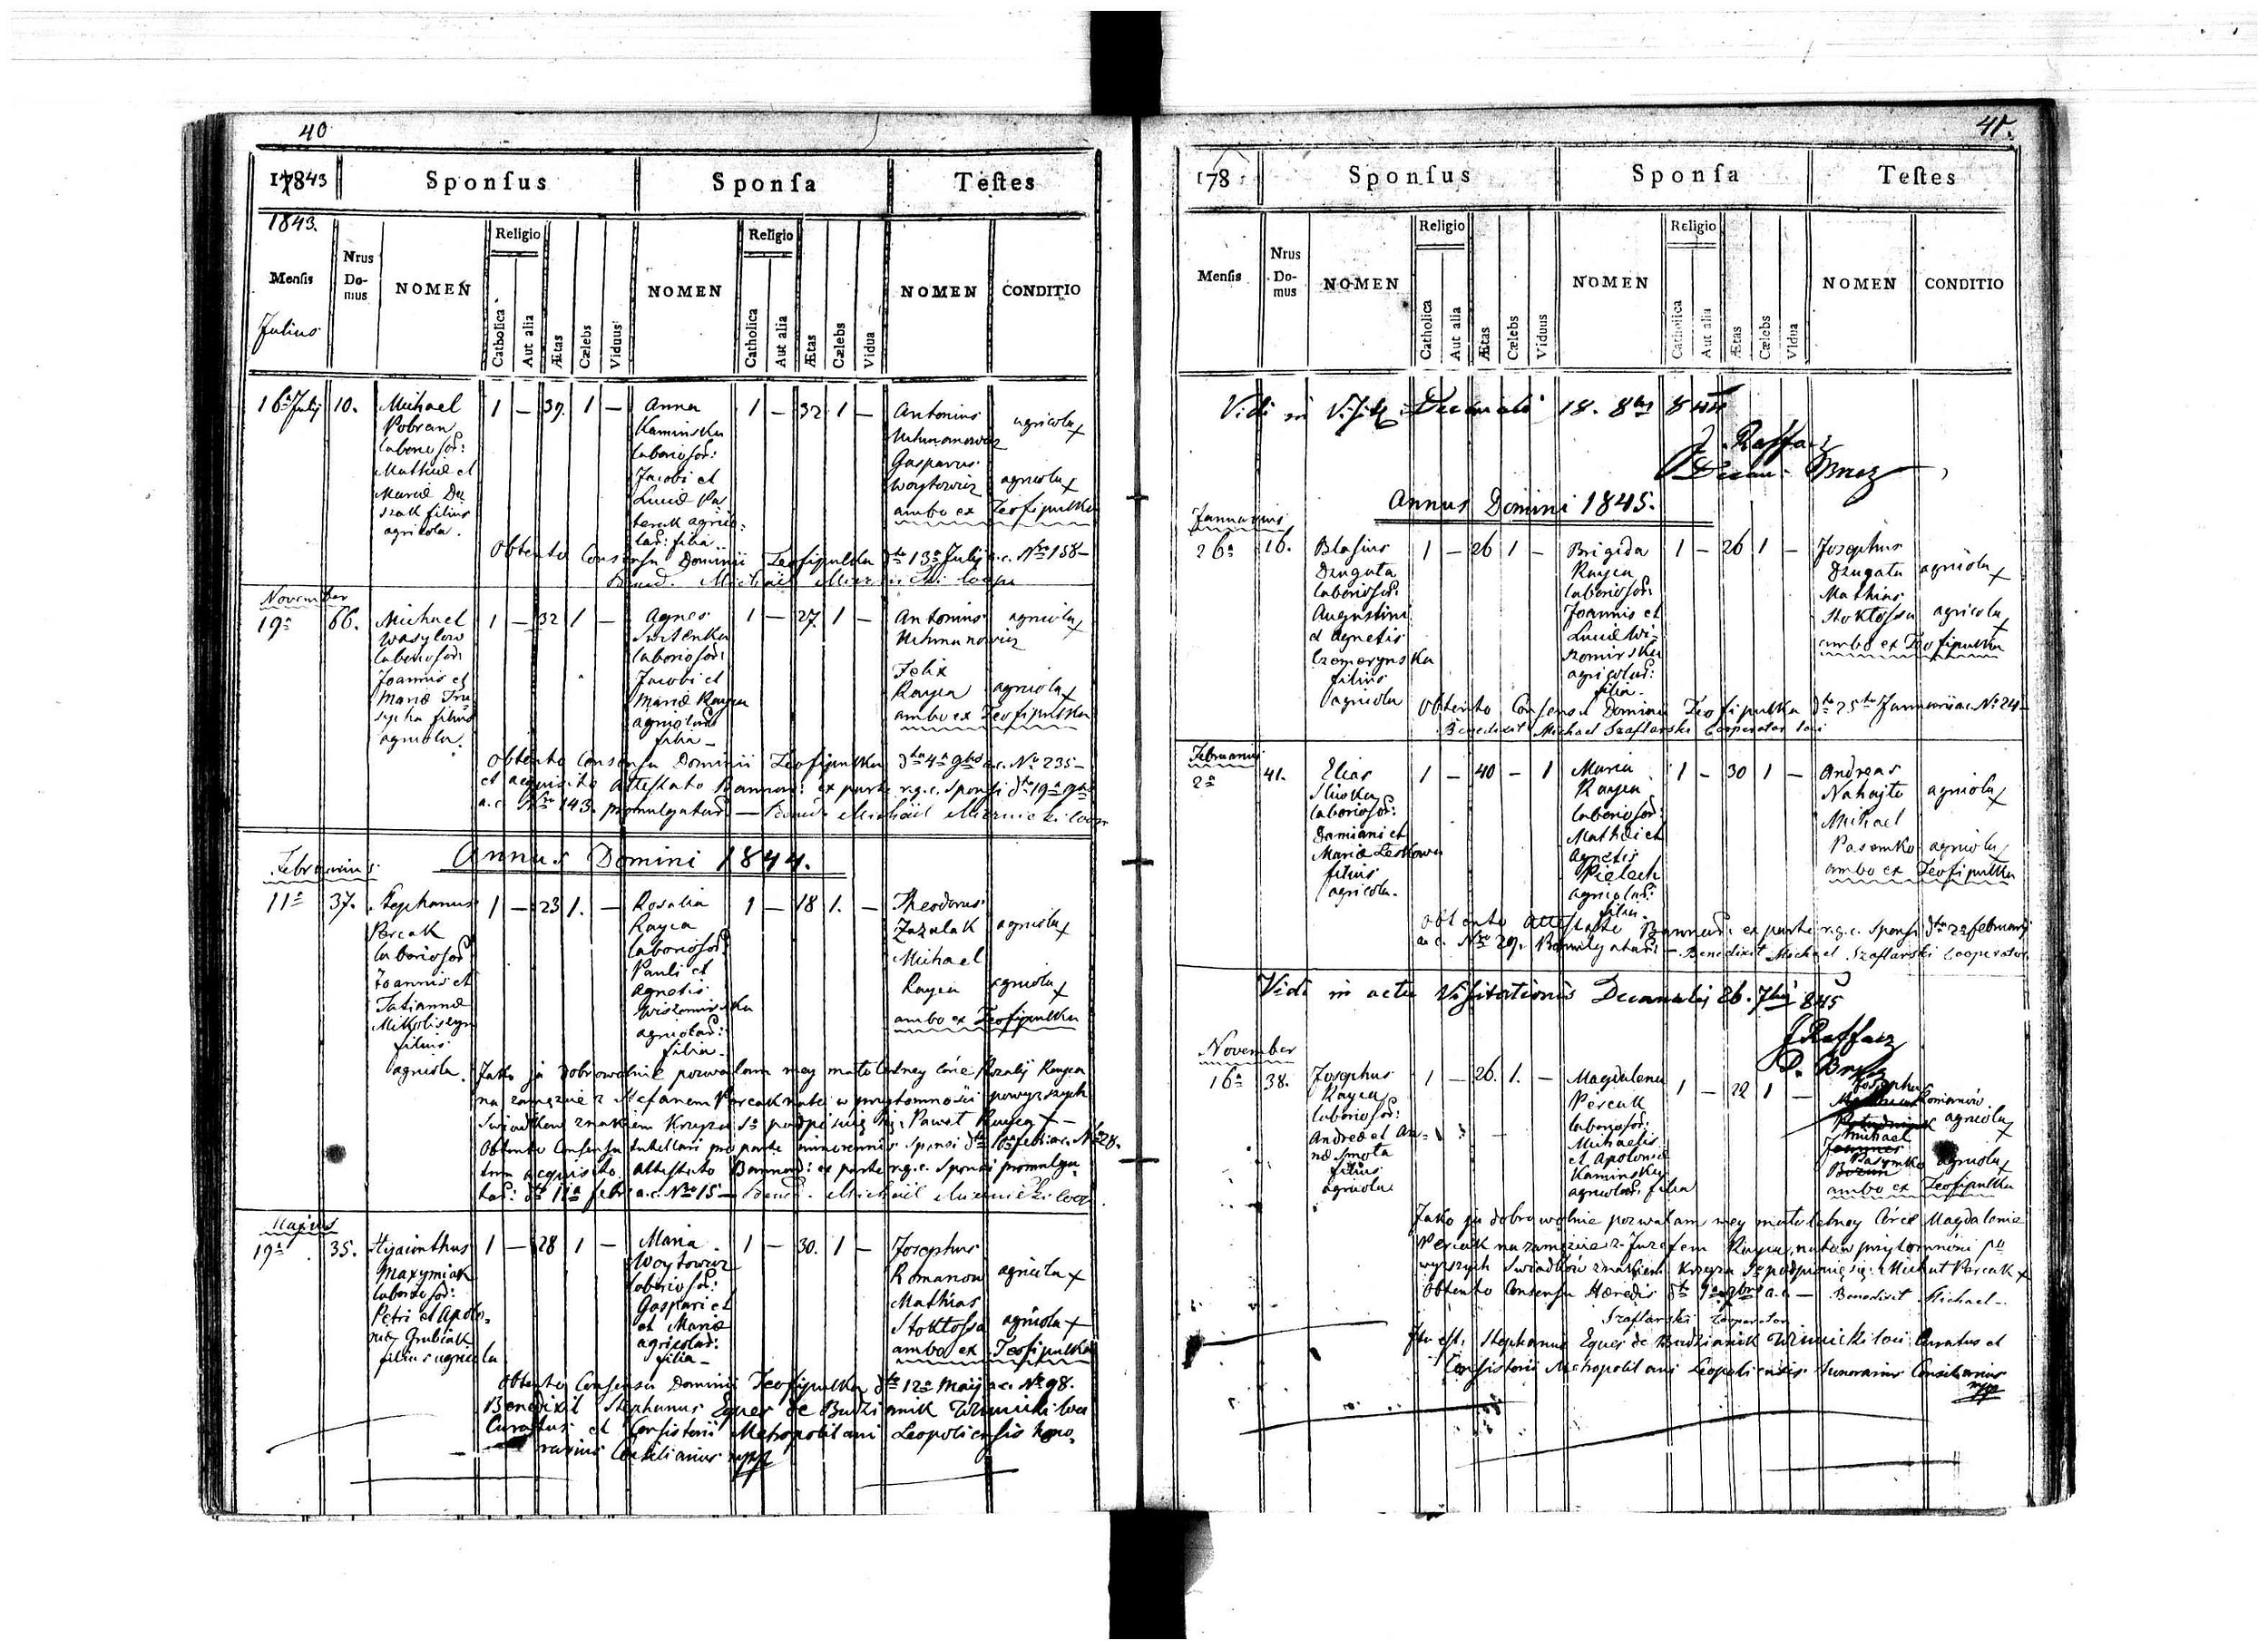 40
17843
Sponſus
Sponſa
Teſtes
1843.
Menſis
Nrus Do-mus
NOMEN
Religio
Catholica
Aut alia
Ætas
Cælebs
Viduus
NOMEN
Religio
Catholica
Aut alia
Ætas
Cælebs
Vidua
NOMEN
CONDITIO
Julius
16ª Julij 10.
Michael
Pobran
laboriosor:
Mathiæ et
Mariæ Du
szak filius
agricola.
1 — 39. 1 —
Anna
Kaminska
laboriosor:
Jacobi et
Luciæ Pa
terak agrico:
lar: filia
1 — 32 1 —
Antonius
agricola x
Gasparus
Woytowicz agricola x
ambo ex Teofipulka
Obtento Consensu Dominii Teofipulka dto 13ª Julij a.c. Nro 158 —
November
19ª 66.
Michael
Wasylow
laboriosor:
Joannis et
Mariæ
filius
agricola.
1 — 32 1 —
Agnes
laboriosor:
Jacobi et
Mariæ Rayca
agricolar:
filia —
1 — 27. 1 —
Antonius agricola x
Felix
Rayca agricola x
ambo ex Teofipulka
Obtento Consensu Dominii Teofipulka dto 4ª 9bris a.c. No 235 —
et acquisito Attestato Bannor: ex parte r.g.c. Sponsi dto 19ª 9bris
a.c. Nro 143. promulgatar: —
Annus Domini 1844.
Februarius
11ª 37.
Stephanus
Percak
laboriosor:
Joannis et
Tatiannæ
Mikoliszyn
filius
agricola.
1 — 23 1. —
Rosalia
Rayca
laboriosor:
Pauli et
Agnetis
Wiszomirska
agricolar:
filia —
1 — 18 1. —
Theodorus
Zazulak agricola x
Michael
Rayca agricola x
ambo ex Teofipulka
Jako ja dobrowolnie pozwalam mey małoletney Córce Rozalij Rayca
na zamęzcie z Stefanem Percak nato w przytomności powyzszych
Swiadków znakiem Krzyza Sgo podpisuię się. Paweł Rayca x —
Obtento Consensu tutellari pro parte minorennis Sponsi dto 10ª febr: a.c. No 28.
tum acquisito Attestato Bannor: ex parte r.g.c. Sponsi promulga
tar: dto 11ª febr: a.c. Nro 15 —
Majus
19ª 35.
Hyacinthus
Maxymiak
laboriosor:
Petri et Apolo-
niæ Grubiak
filius agricola
1 — 28 1 —
Maria
Woytowicz
laboriosor:
Gaspari et
et Mariæ
agricolar:
filia —
1 — 30. 1 —
Josephus
Romanow agricola x
Mathias
Stoktossa agricola x
ambo ex Teofipulka
Obtento Consensu Dominii Teofipulka dto 12ª Maij a.c. No 98.
Benedixit Stephanus Eques de Budzianik Winnicki loci
Curatus et Consistorii Metropolitani Leopoliensis hono-
rarius Consiliarius mpp
41.
178
Sponſus
Sponſa
Teſtes
Menſis
Nrus Do-mus
NOMEN
Religio
Catholica
Aut alia
Ætas
Cælebs
Viduus
NOMEN
Religio
Catholica
Aut alia
Ætas
Cælebs
Vidua
NOMEN
CONDITIO
Vidi in Visit: Decanali 18. 8bris 844
J. Raffacz
Decan.
Annus Domini 1845.
Januarius
26ª 16.
Blasius
Dzugata
laboriosor:
Augustini
et Agnetis
Czemerynska
filius
agricola
1 — 26 1 —
Brigida
Rayca
laboriosor:
Joannis et
Luciæ Wi-
szomirska
agricolar:
filia —
1 — 26 1 —
Josephus
Dzugata agricola x
Mathias
Stoktossa agricola x
ambo ex Teofipulka
Obtento Consensu Dominii Teofipulka dto 25ta Januarii a.c. No 24 —
Benedixit Michael Szaflarski Cooperator loci
Februarius
2ª 41.
Elias
Sliska
laboriosor:
Damiani et
Mariæ Leskowa
filius
agricola.
1 — 40 — 1
Maria
Rayca
laboriosor:
Mathæi et
Agnetis
Pielech
agricolar:
filia.
1 — 30 1 —
Andreas
Nahayto agricola x
Michael
Pasemko agricola x
ambo ex Teofipulka
Obtento Attestato Bannor: ex parte r.g.c. Sponsi dto 2ª februarij
a.c. Nro 29. Promulgatar: — Benedixit Michael Szaflarski Cooperator
Vidi in actu Visitationis Decanalis 26. 7bris 845
J Raffacz
November
16ª 38.
Josephus
Rayca
laboriosor:
Andreæ et An-
næ Smota
filius
agricola
1 — 26. 1. —
Magdalena
Percak
laboriosor:
Michaelis
et Apoloniæ
Kaminska
agricolar: filia
1 — 22 1 —
Josephus
Romanow
agricola x
Michael
Pasymko agricola x
ambo ex Teofipulka
Jako ja dobrowolnie pozwałam mey małoletney Córce Magdalenie
Percak na zamęzcie z Juzefem Rayca, nato w przytomności po
wyzszych Swiadków znakiem Krzyza Sgo podpisuię się. Michał Percak x
Obtento Consensu Hæredis dto 9ª 9bris a.c. — Benedixit Michael —
Szaflarski Cooperator
Ita est. Stephanus Eques de Budzianik Winnicki loci Curatus et
Consistorii Metropolitani Leopoliensis honorarius Consiliarius
mpp